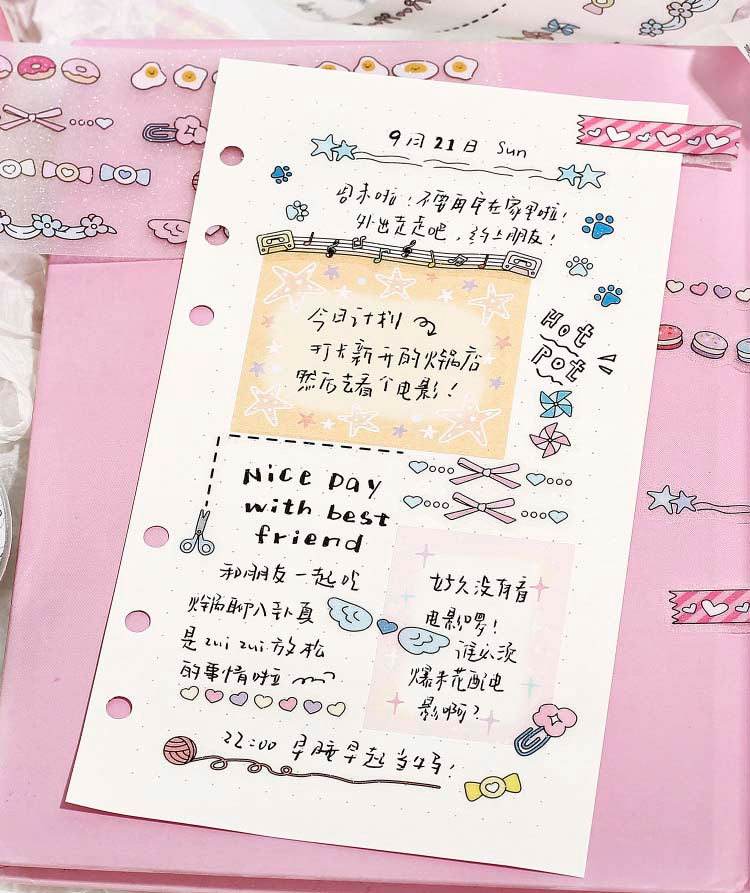 9月21日 Sun
周末啦！不要再呆在家里啦！
外出走走吧，约上朋友！
今日计划
打卡新开的火锅店
然后去看个电影！
Hot
Pot
Nice Day
with best
friend
和朋友一起吃
火锅聊八卦真
是zui zui放松
的事情啦
好久没有看
电影啰！
谁必须
爆米花配电
影啊？
22:00 早睡早起当好！